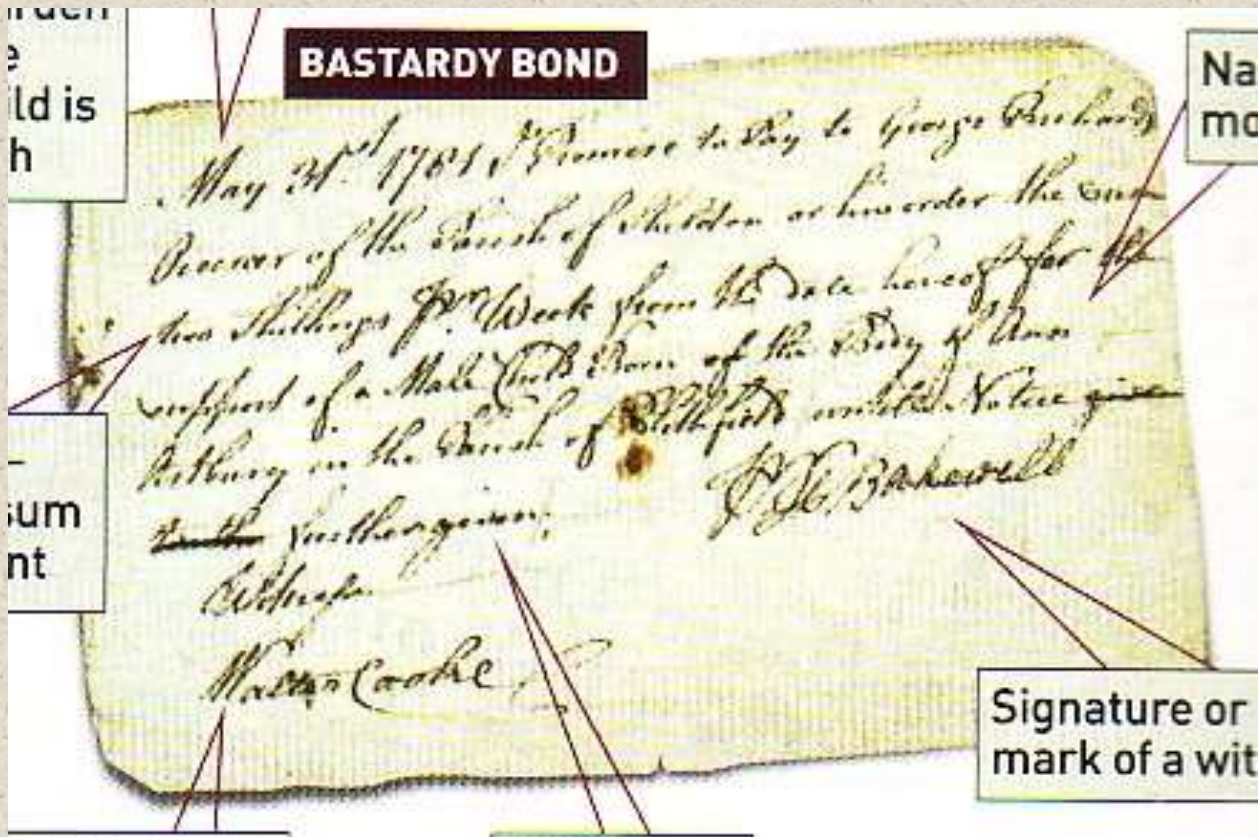 urden
e
ild is
h
BASTARDY BOND
Na
mo
May 31st. 1781 I Promise to Pay to George Richards
Overseer of the Parish of or his order the sum
two Shillings Pr. Week from the date hereof for the
support of a Male Child Born of the Body of Ann
in the Parish of Blithfield until Notice given
further given
Witness
Walter Cooke
Bakewell
sum
nt
Signature or
mark of a wit